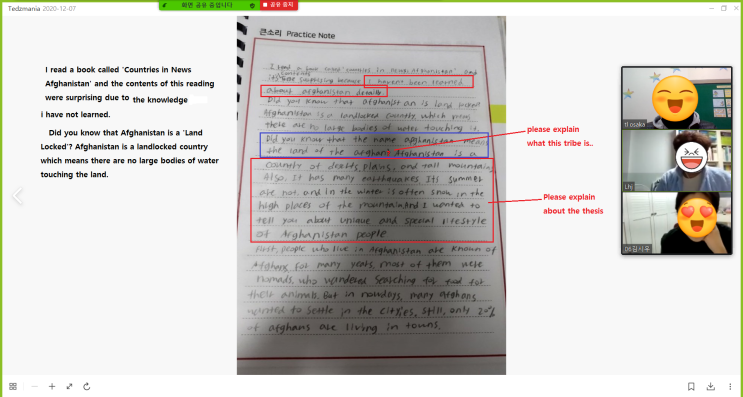 Tedzmania 2020-12-07
화면 공유 중입니다
공유 중지
I read a book called 'Countries in News
Afghanistan' and the contents of this reading
were surprising due to the knowledge
i have not learned.
Did you know that Afghanistan is a 'Land
Locked'? Afghanistan is a landlocked country
which means there are no large bodies of water
touching the land.
큰소리 Practice Note
I read a book called 'countries in news Afghanistan' and
contents
its were surprising because I havent been learned
about afghanistan details.
Did you know that afghanistan is land locked
Afghanistan is a landlocked country which means
there are no large bodies of water touching it.
Did you know that the name afghanistan means
the land of the afghan? Afghanistan is a
country of deserts, plains, and tall mountains
Also, It has many earthquakes Its summer
are hot. and in the water is often snow in the
high places of the mountain. And I wanted to
tell you about unique and special lifestyle
of Afghanistan people
First, people who live in Afghanistan are known as
Afghans. For many years, most of them were
nomads, who wandered searching for food for
their animals. But in nowdays, many afghans
wanted to settle in the citYies, still, only 20%
of afghans are living in towns.
please explain
what this tribe is..
Please explain
about the thesis
tl osaka
LHJ
06김시우